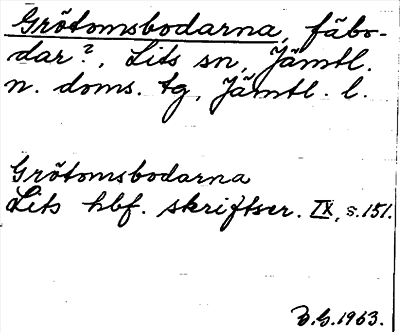 Grötomsbodarna, fäbo-
dar?, Lits sn, Jämtl.
n. doms. tg, Jämtl. l.
Grötomsbodarna
Lits hbf. skriftser. IX, s. 151.
B.G. 1963.